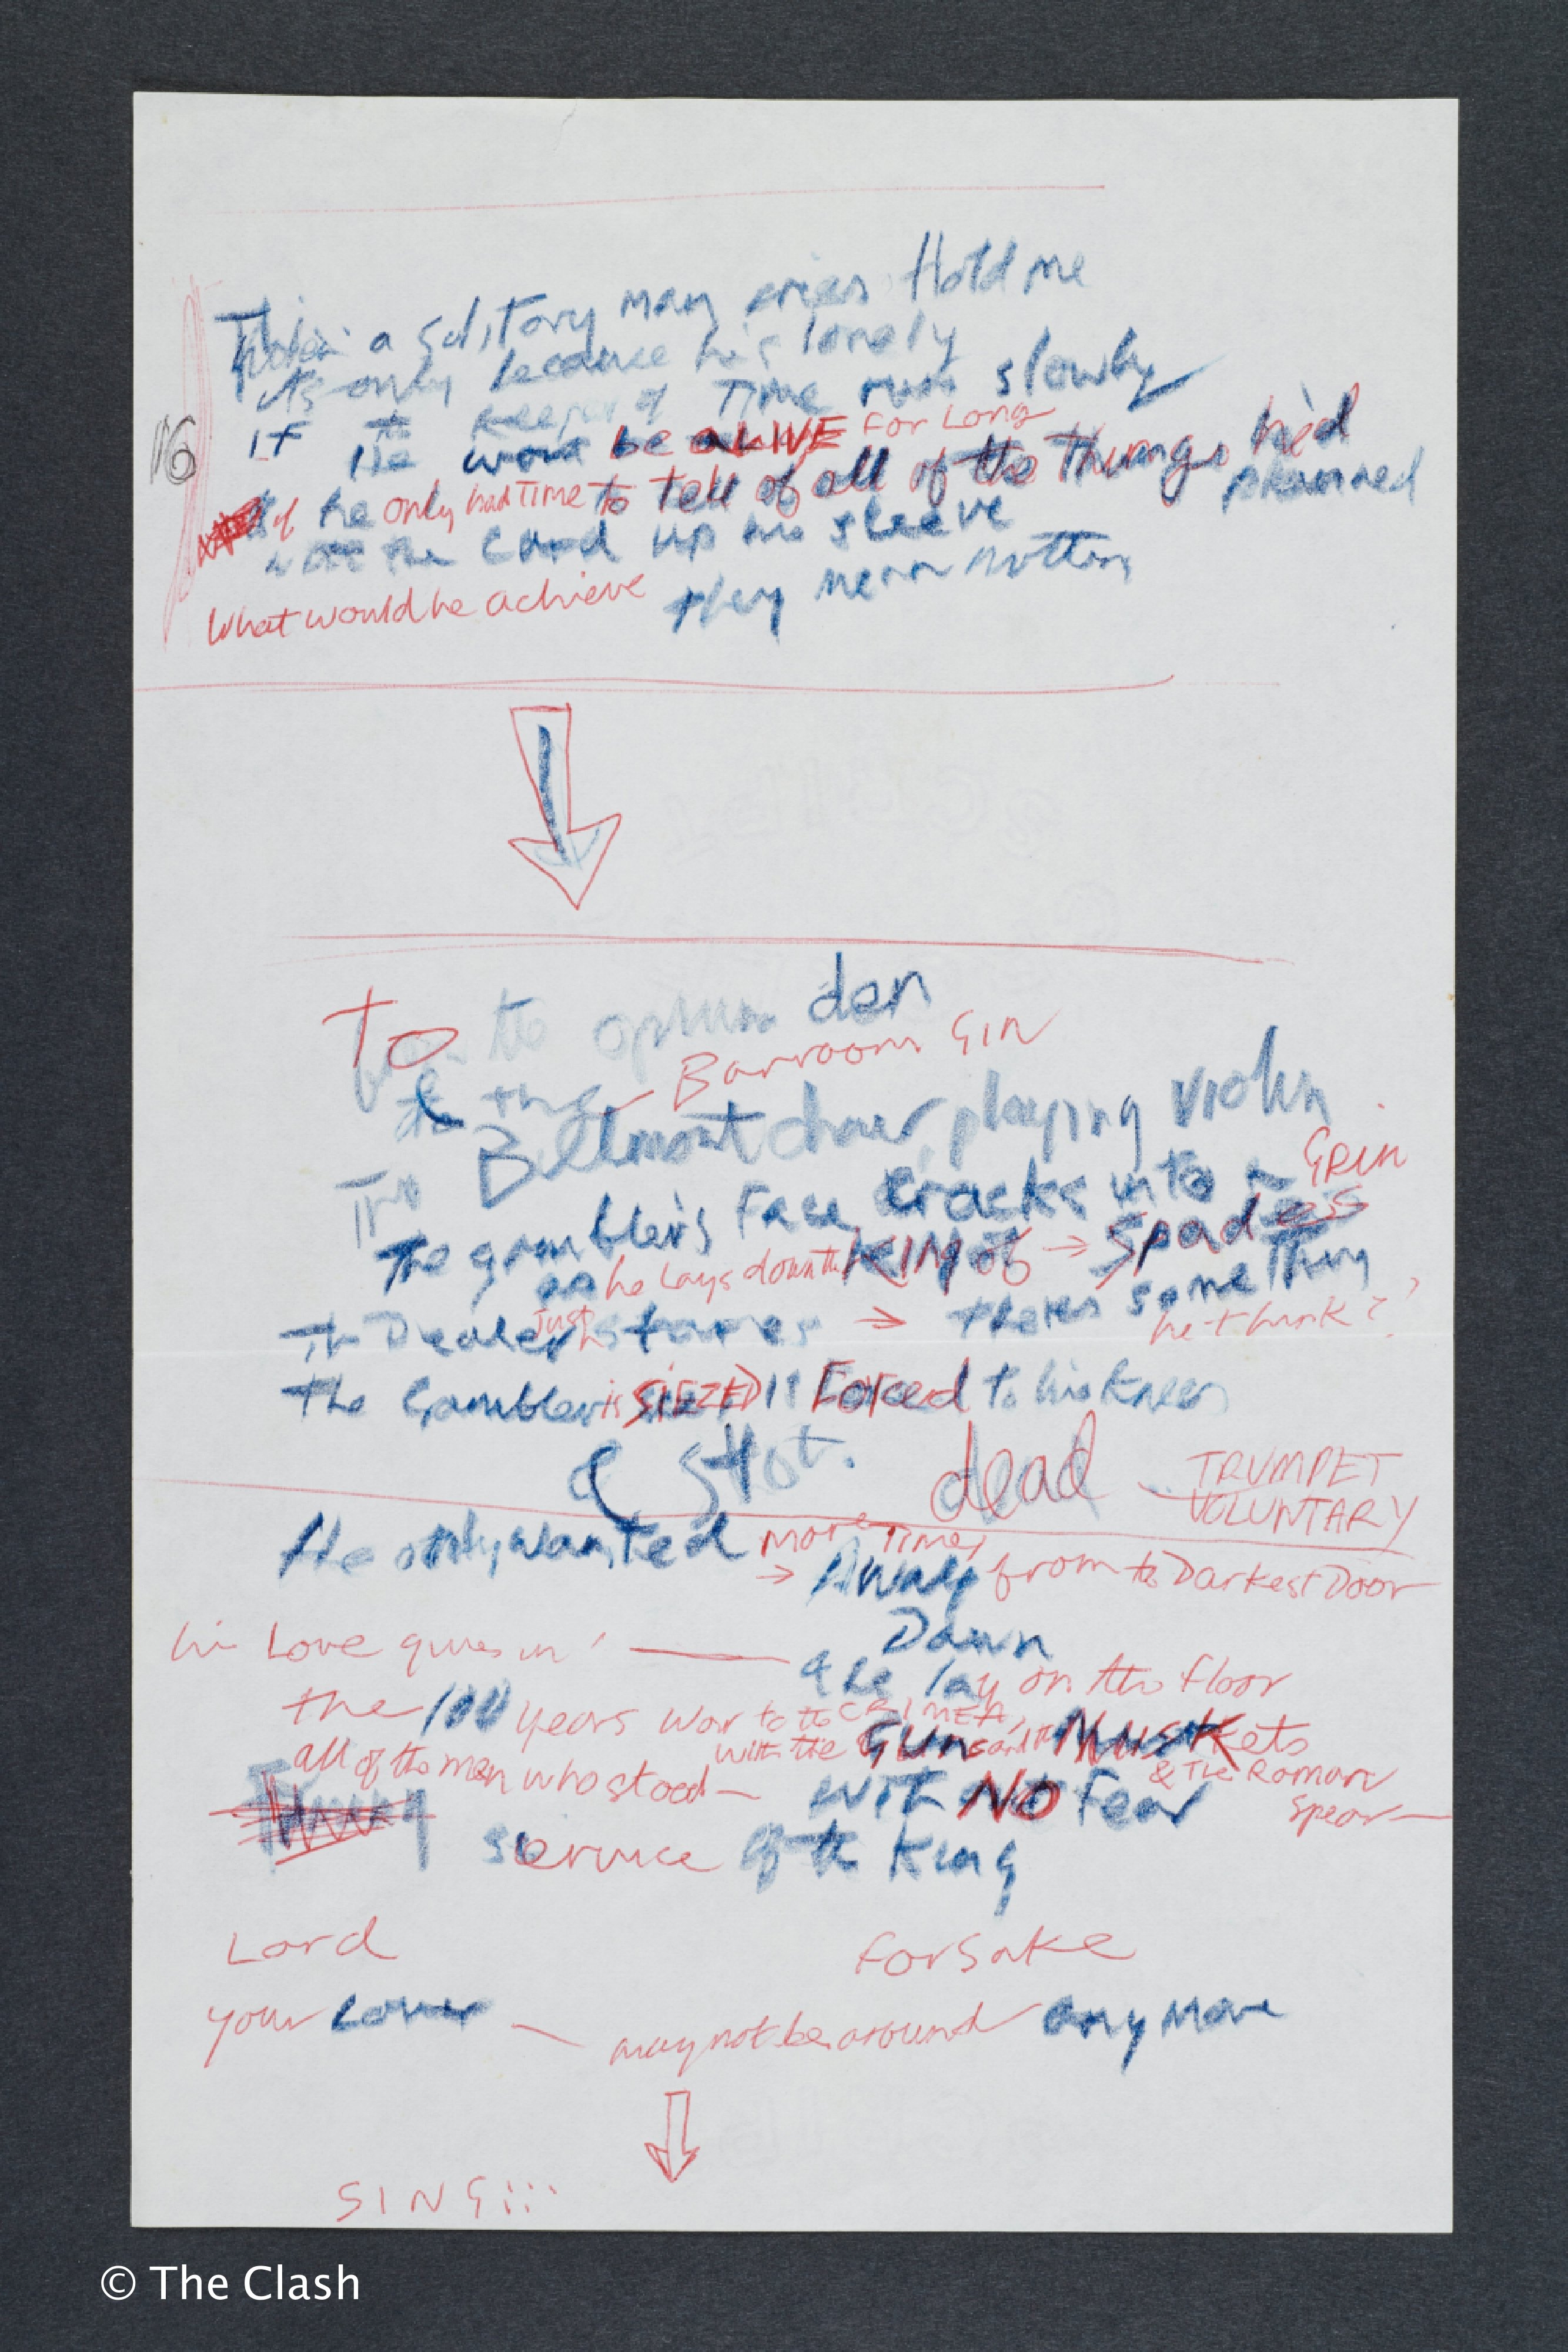 a solitary man cries Hold me
its only because he's lonely
16
If the keeper of Time runs slowly
He wont be ALIVE For Long
if he only had Time to tell of all of the Things he'd
planned
the Card up his sleeve
What would he achieve
they mean nothing
To the opium den
& the Barroom GIN
Bellmont chair, playing violin
The gambler's Face Cracks into a GRIN
as he Lays down the KING of → Spades
The Dealer just stares → theres something
he thinks?
The Gambler is SIEZED & Forced to his Knees
& SHOt. dead
TRUMPET
VOLUNTARY
He only wanted more Time,
→ Away from the Darkest Door
his Love gives in
Dawn
& he lay on the floor
the 100 years war to the CRIMEA,
with the Gun and the Muskets
& THE Roman
Spear
all of the men who stood
with NO Fear
service of the King
Lord
Forsake
your
may not be around any More
SING!!!
© The Clash